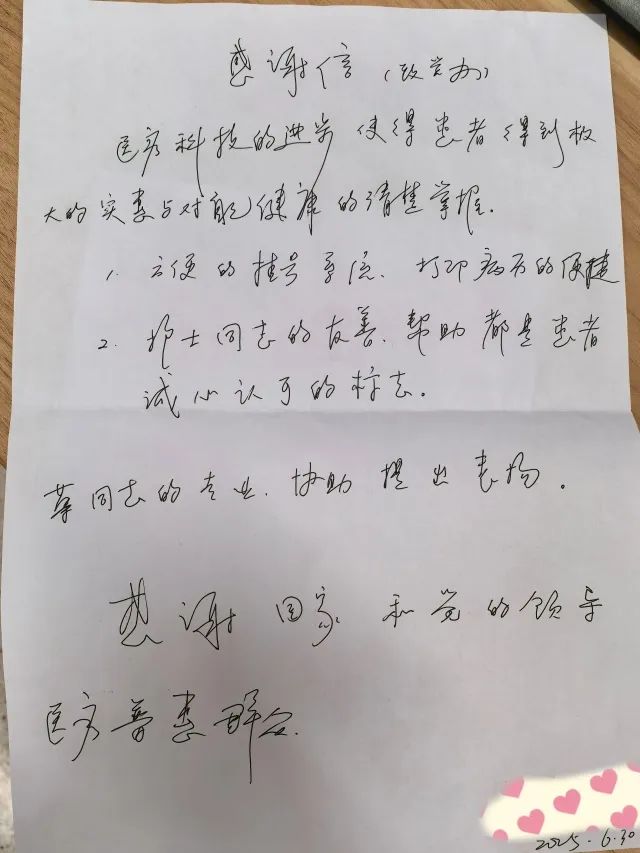 感谢信(政党办)
医疗科技的进步使得患者得到极
大的实惠与对自己健康的清楚掌握.
1. 方便的挂号系统. 打印病历的便捷
2. 护士同志的友善.帮助都是患者
诚心认可的标志。
等同志的专业.协助提出表扬。
感谢国家和党的领导
医疗普惠群众.
2025.6.30